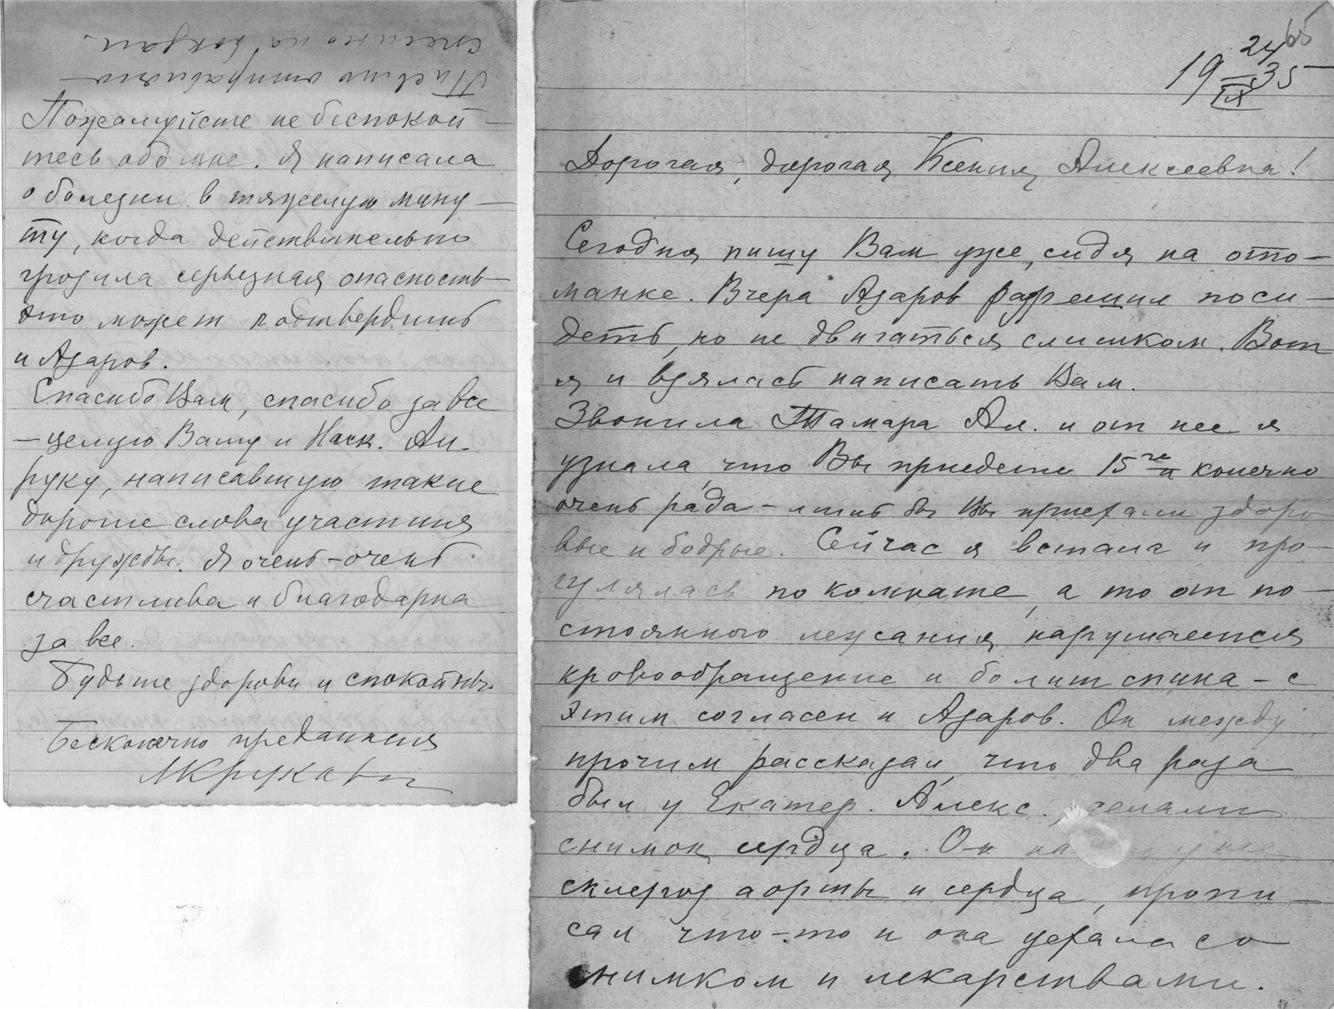 65
19 24/IX 35
Дорогая, дорогая Ксения Алексеевна!
Сегодня пишу Вам уже, сидя на отто-
манке. Вчера Азаров разрешил поси-
деть, но не двигаться слишком. Вот
я и взялась написать Вам.
Звонила Тамара Ал. и от нее я
узнала, что Вы приедете 15го и конечно
очень рада – лишь бы Вы приехали здоро
вые и бодрые. Сейчас я встала и про-
гулялась по комнате, а то от по-
стоянного лежания нарушается
кровообращение и болит спина – с
этим согласен и Азаров. Он между
прочим рассказал, что два раза
был у Екатер. Алекс., делали
снимок сердца. Он на
склероз аорты и сердца, пропи-
сал что-то и она уехала со
снимком и лекарствами.
Письмо отправляю
спешно на вокзал.
Пожалуйста не беспокой-
тесь обо мне. Я написала
о болезни в тяжелую мину-
ту, когда действительно
грозила серьезная опасность–
это может подтвердить
и Азаров.
Спасибо Вам, спасибо за все
– целую Вашу и Ан.
руку, написавшую такие
дорогие слова участия
и дружбы. Я очень-очень
счастлива и благодарна
за все.
Будьте здоровы и спокойны.
Бесконечно преданная